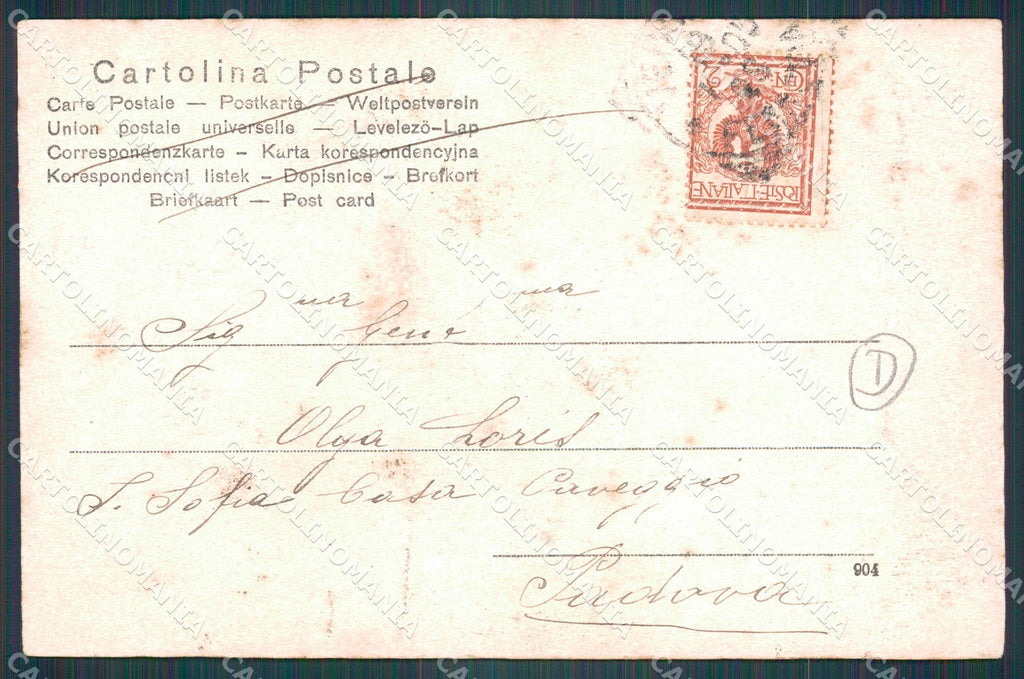 Cartolina Postale
Carte Postale — Postkarte — Weltpostverein
Union postale universelle — Levelezö-Lap
Correspondenzkarte – Karta korespondencyjna
Korespondencni listek – Dopisnice – Brefkort
Briefkaart — Post card
CEN. 2
POSTE·ITALIANE
Sig.ma Gen.ma
D
Olga Loris
S. Sofia Casa Caveggio
904
Padova
CARTOLINOMANIA